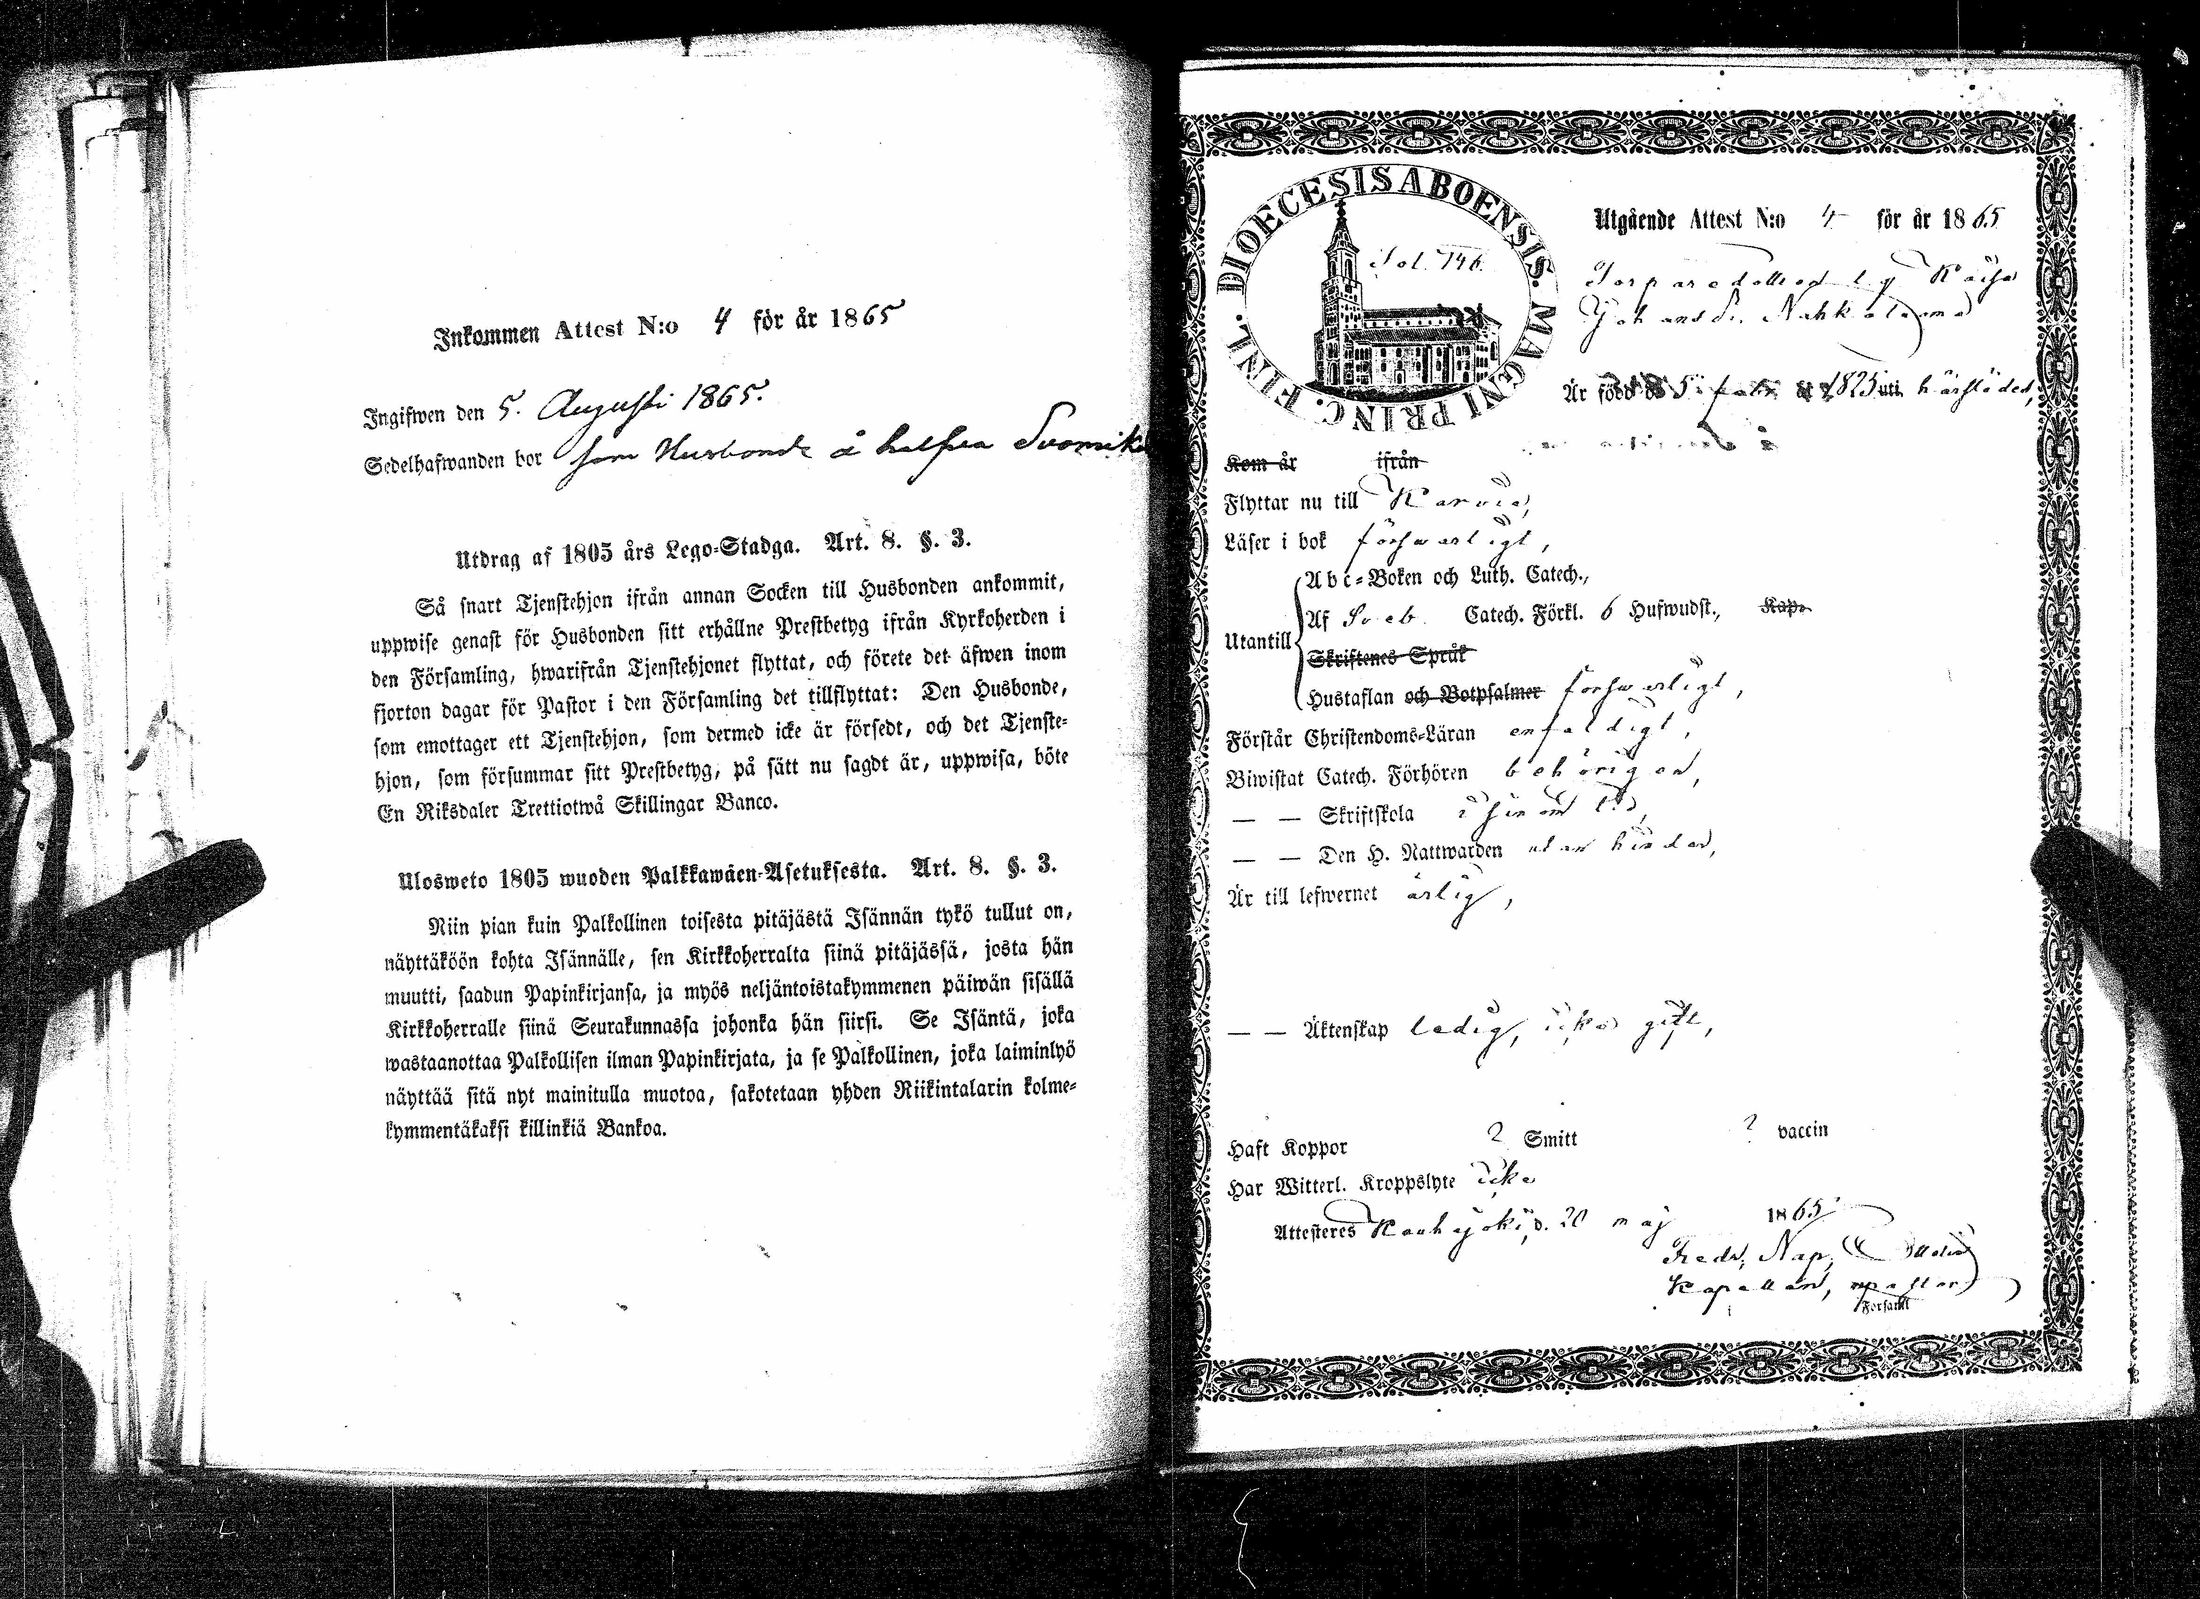 Inkommen Attest N:o 4 för år 1865
Ingifwen den 5. Augusti 1865.
Sedelhafwanden bor som Husbonde å halfva
Utdrag af 1805 års Lego-Stadga. Art. 8. §. 3.
Så snart Tjenstehjon ifrån annan Socken till Husbonden ankommit,
uppwise genast för Husbonden sitt erhållne Prestbetyg ifrån Kyrkoherden i
den Församling, hwarifrån Tjenstehjonet flyttat, och förete det äfwen inom
fjorton dagar för Pastor i den Församling det tillflyttat: Den Husbonde,
som emottager ett Tjenstehjon, som dermed icke är försedt, och det Tjenste-
hjon, som försummar sitt Prestbetyg, på sätt nu sagdt är, uppwisa, böte
En Riksdaler Trettiotwå Skillingar Banco.
Ulosweto 1805 wuoden Palkkawäen-Asetuksesta. Art. 8. §. 3.
Niin pian kuin Palkollinen toisesta pitäjästä Isännän tykö tullut on,
näyttäköön kohta Isännälle, sen Kirkkoherralta siinä pitäjässä, josta hän
muutti, saadun Papinkirjansa, ja myös neljäntoistakymmenen päiwän sisällä
Kirkkoherralle siinä Seurakunnassa johonka hän siirsi. Se Isäntä, joka
wastaanottaa Palkollisen ilman Papinkirjata, ja se Palkollinen, joka laiminlyö
näyttää sitä nyt mainitulla muotoa, sakotetaan yhden Riikintalarin kolme-
kymmentäkaksi killinkiä Bankoa.
DIOECESIS ABOENSIS. MAGNI PRINC. FINL.
Fol. 146.
Utgående Attest N:o 4 för år 1865
Kaisa
Johansdr.
Är född d 5 febr. 1825 uti härstädes,
Kom år ifrån
Flyttar nu till Karvia,
Läser i bok försvarligt,
Abc-Boken och Luth. Catech.,
Utantill
Af Sveb. Catech. Förkl. 6 Hufwudst., Kap.
Skriftenes Språk
Hustaflan och Botpsalmer försvarligt,
Förstår Christendoms-Läran enfaldigt,
Biwistat Catech. Förhören behörigen,
— — Skriftskola i sinom tid,
— — Den H. Nattwarden utan hinder,
Är till lefwernet ärlig,
— — Äktenskap ledig, icke gift,
Haft Koppor ? Smitt ? vaccin
Har Witterl. Kroppslyte icke
Attesteres Kauhajoki, d. 20 maj 1865
Fredr. Nap.
Kapellan,
Församl